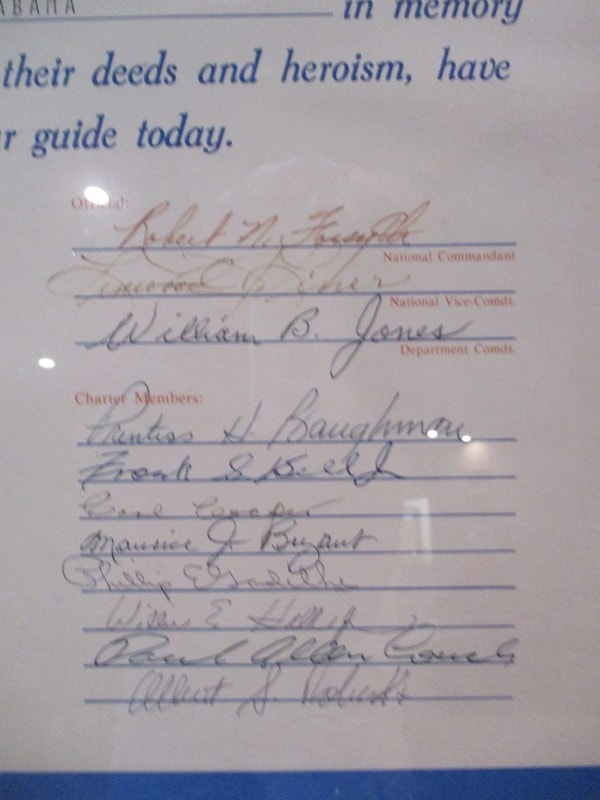 ABAMA in memory
their deeds and heroism, have
r guide today.
Official:
Robert N. Forsyth
National Commandant
National Vice-Comdt.
William B. Jones
Department Comdt.
Charter Members:
Prentiss H Baughman
Frank S
Maurice J. Bryant
Phillip E
Willis E
Paul Allen
Albert S. Roberts